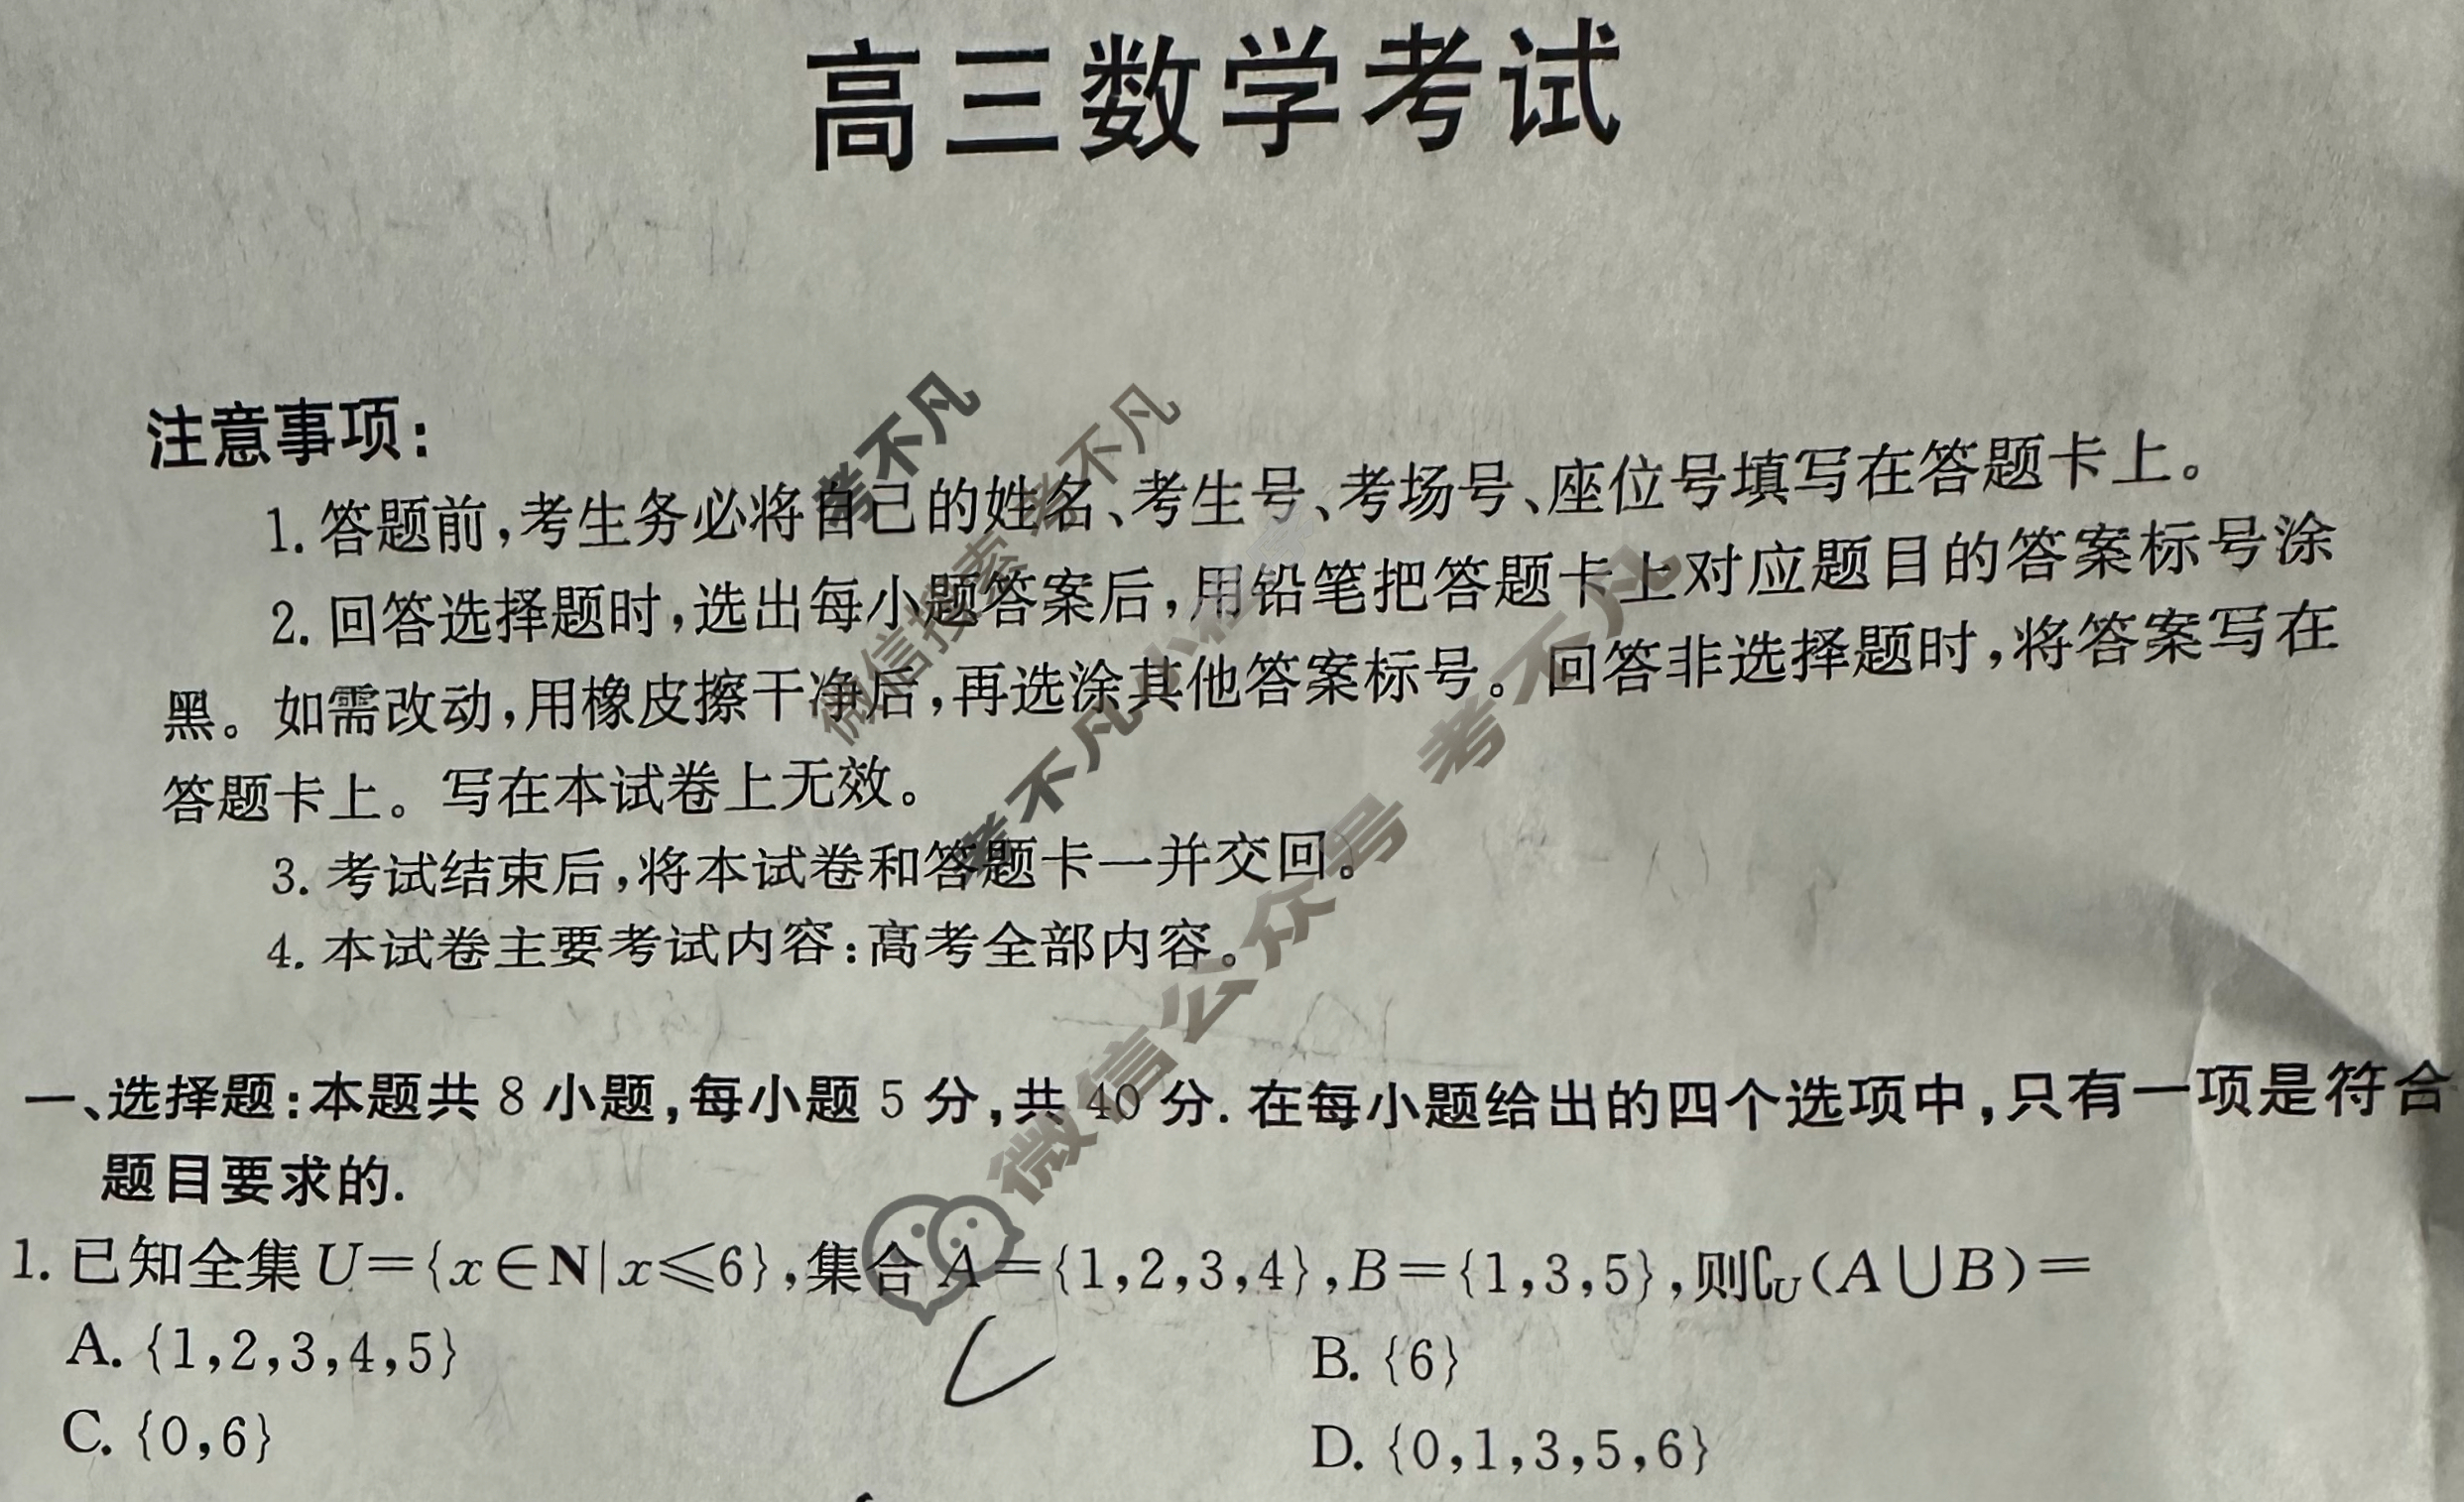 高三数学考试
注意事项:
1. 答题前,考生务必将自己的姓名、考生号、考场号、座位号填写在答题卡上。
2. 回答选择题时,选出每小题答案后,用铅笔把答题卡上对应题目的答案标号涂
黑。如需改动,用橡皮擦干净后,再选涂其他答案标号。回答非选择题时,将答案写在
答题卡上。写在本试卷上无效。
3. 考试结束后,将本试卷和答题卡一并交回。
4. 本试卷主要考试内容:高考全部内容。
一、选择题:本题共 8 小题,每小题 5 分,共 40 分. 在每小题给出的四个选项中,只有一项是符合
题目要求的.
1. 已知全集 U={x∈N|x⩽6},集合 A={1,2,3,4},B={1,3,5},则∁U(A∪B)=
A. {1,2,3,4,5}
B. {6}
C. {0,6}
D. {0,1,3,5,6}
C
考不凡
微信搜索 考不凡
考不凡
微信公众号 考不凡